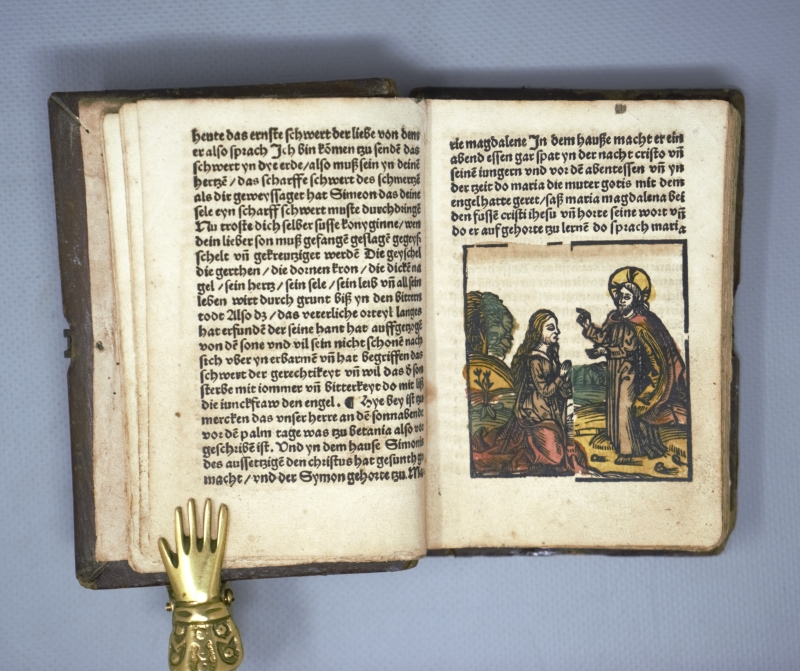 heute das ernste schwert der liebe von dem
er also sprach Ich bin kōmen tzu sendē das
schwert yn dye erde/also muß sein yn deinē
hertzē/das scharffe schwert des schmertzē
als dir geweyssaget hat Simeon das deine
sele eyn scharff schwert muste durchdringē
Nu troste dich selber susse konyginne/wen
dein lieber son muß gefangē geslagē gegeys
schelt vn̄ gekreutziger werdē Die geyschel
die gerthen/die dornen kron/die dickē na
gel/sein hertz/sein sele/sein leib vn̄ all sein
leben wirt durch grunt biß yn den bittern
todt Also dz/das veterliche orteyl langes
hat erfundē der seine hant hat auffgetzogē
von dē sone vnd vil sein nicht schonē nach
sich vber yn erbarmē vn̄ hat begriffen das
schwert der gerechtikeyt vn̄ wil das d̄ son
sterbe mit iommer vn̄ bitterkeyt do mit liß
die iunckfraw den engel. ¶ Hye bey ist tzu
mercken das vnser herre an dē sonnabende
vor dē palm tage was tzu betania also vor
geschribē ist. Vnd yn dem hause Simonis
des aussetzigē den christus hat gesunth ge
macht/vnd der Symon gehorte tzu. Ma
rie magdalene In dem hauße macht er ein
abend essen gar spat yn der nacht cristo vn̄
seinē iungern vnd vor dē abentessen vn̄ yn
der tzeit do maria die muter gotis mit dem
engel hatte geret/saß maria magdalena bei
den fussē cristi ihesu vn̄ horte seine wort vn̄
do er auf gehorte tzu lernē do sprach maria